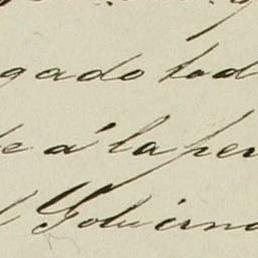 gado tod
de á la per
l Gobierno